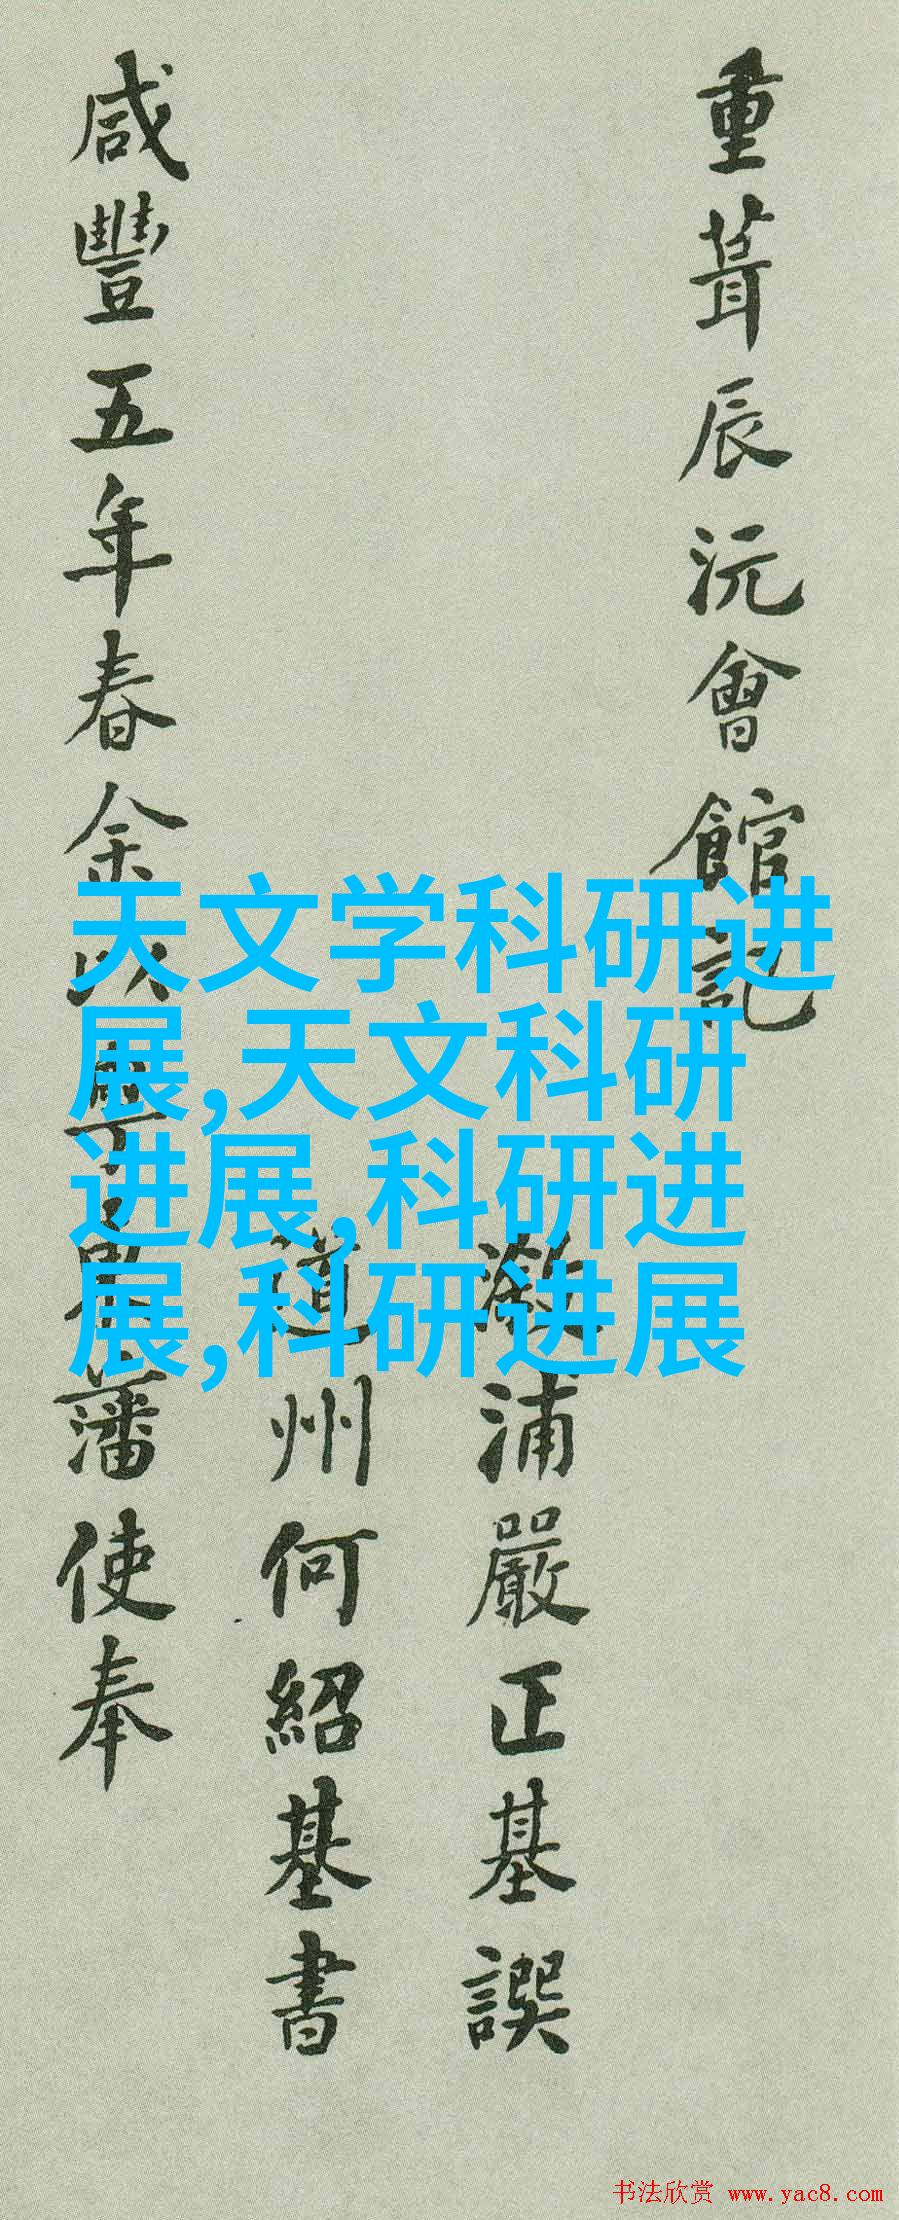 重葺辰沅會館記
漵浦嚴正基譔
道州何紹基書
咸豐五年春余以粤臬藩使奉
天文学科研进
展,天文科研
进展,科研进
展,科研进展
书法欣赏 www.yac8.com